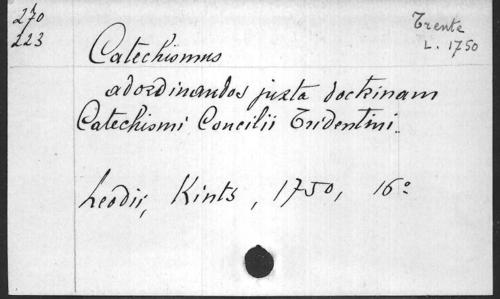 270
223
Trente
L. 1750
Catechismus
adordinandos juxta doctrinam
Catechismi Concilii Tridentini.
Leodii, Kints, 1750, 16°